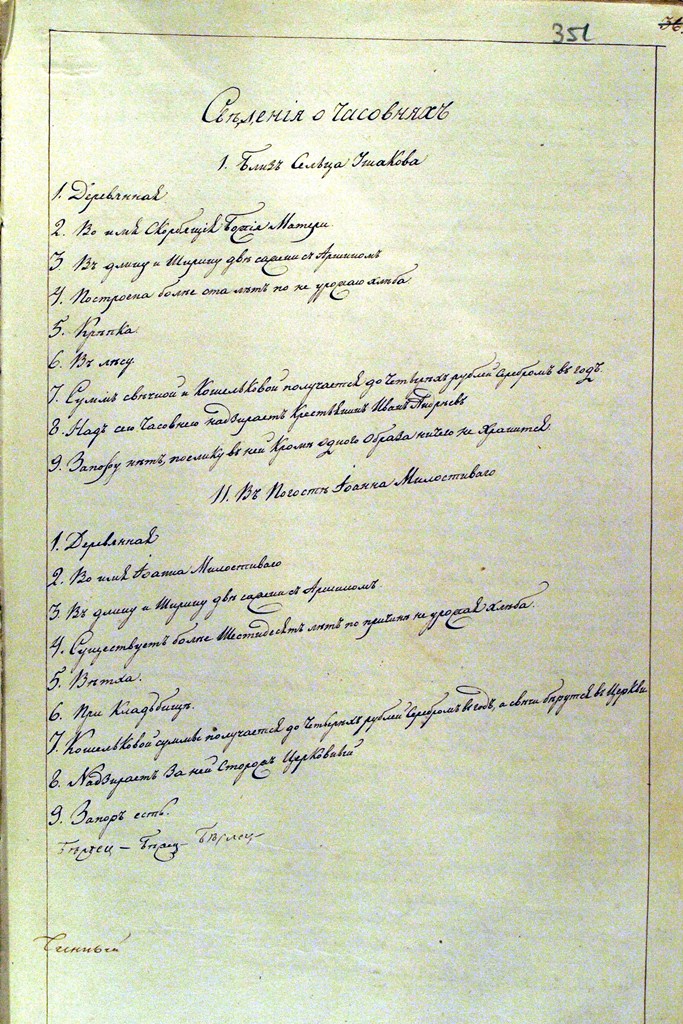 351
36
Свѣденія о Часовняхъ
1. Близъ Сельца Ишакова
1. Деревянная
2. Во имя Скорбящія Божія Матери
3. Въ длину и Ширину двѣ сажени съ Аршиномъ
4. Построена болѣе ста лѣтъ по не урожаю хлѣба
5. Крѣпка.
6. Въ лѣсу
7. Суммы свѣчной и Кошельковой получается до Четырехъ рублей Серебромъ въ годъ.
8. Надъ сею Часовнею надзираетъ Крестьянинъ Иванъ
9. Запору нѣтъ, поелику въ ней Кромѣ одного Образа ничего не Хранится
11. Въ Погостѣ Іоанна Милостиваго
1. Деревянная
2. Во имя Іоанна Милостиваго
3. Въ длину и Ширину двѣ сажени съ Аршиномъ.
4. Существуетъ болѣе Шестидесятъ лѣтъ по причинѣ не урожая Хлѣба.
5. Вѣтха.
6. При Кладьбищѣ.
7. Кошельковой суммы получается до Четырехъ рублей Серебромъ въ годъ, а свѣчи берутся въ Церкви
8. Надзираетъ За ней Сторожъ Церковный
9. Запоръ есть.